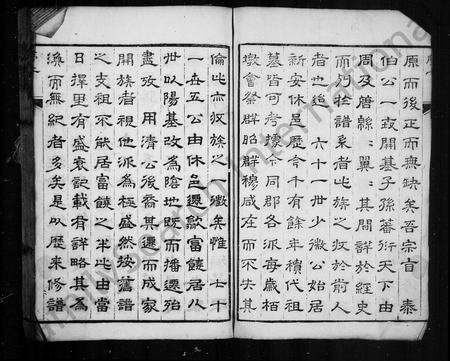 原而後正而無缺矣吾宗自 泰
伯公一啟開基子孫蕃衍天下由
周及唐緜緜翼翼其間詳於經史
而列於譜系者此族之收於前人
者也迨 六十一世少微公始居
新安休邑歷今千有餘年積代祖
墓皆可考據合同郡各派每歲栢
墩會祭群昭群穆咸在而不失其
倫此亦收族之一徵矣惟 七十
一世五公由休邑遷歙富饒居人
世以陽基改為陰地既而播遷殆
盡攷 用清公後裔其遷而成家
開族者視他派為極盛然按舊譜
之支祖不能居富饒之半此由當
日擇里有盛衰記載有詳略其為
渙而無紀者多矣是以歷來修譜